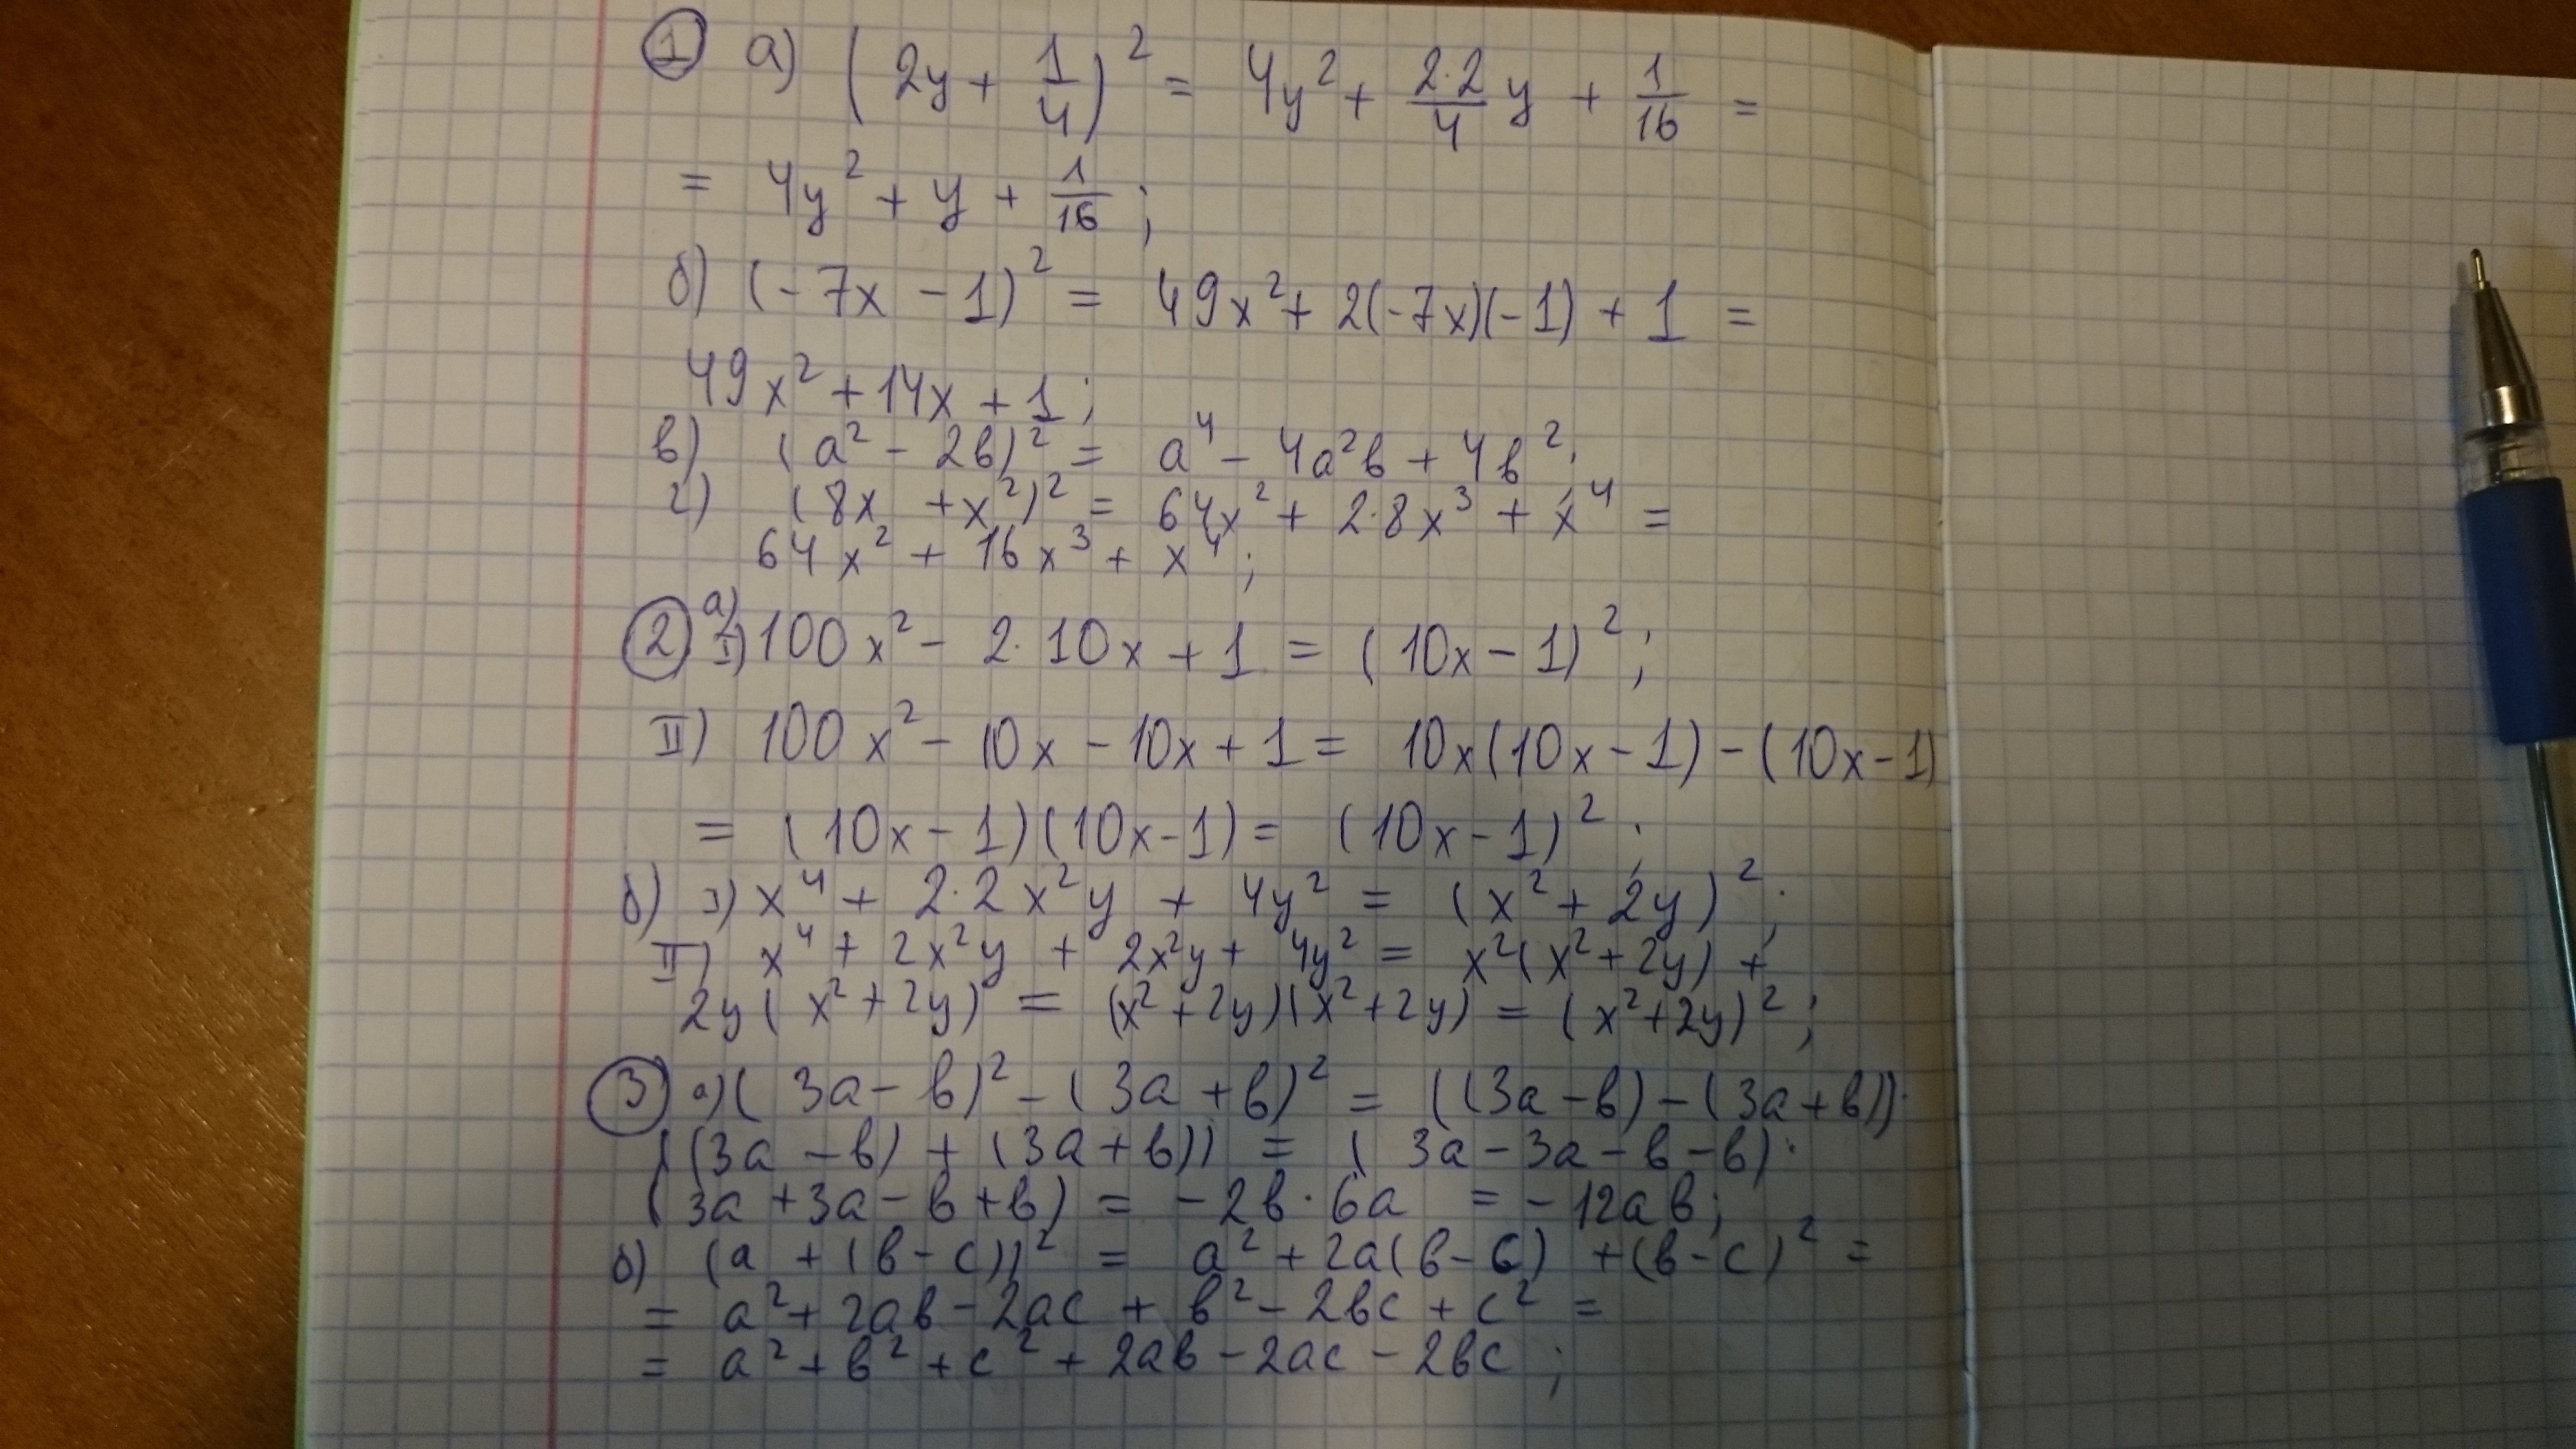 ① а) (2y + 1/4)² = 4y² + 2·2/4 y + 1/16 =
= 4y² + y + 1/16 ;
б) (-7x - 1)² = 49x² + 2(-7x)(-1) + 1 =
49x² + 14x + 1 ;
в) (a² - 2в)² = a⁴ - 4a²в + 4в² ;
г) (8x + x²)² = 64x² + 2·8x³ + x⁴ =
64x² + 16x³ + x⁴ ;
② а) I) 100x² - 2·10x + 1 = (10x - 1)² ;
II) 100x² - 10x - 10x + 1 = 10x(10x - 1) - (10x - 1)
= (10x - 1)(10x - 1) = (10x - 1)² ;
б) I) x⁴ + 2·2x²y + 4y² = (x² + 2y)² ;
II) x⁴ + 2x²y + 2x²y + 4y² = x²(x² + 2y) +
2y(x² + 2y) = (x² + 2y)(x² + 2y) = (x² + 2y)² ;
③ а) (3a - в)² - (3a + в)² = ((3a - в) - (3a + в))·
((3a - в) + (3a + в)) = (3a - 3a - в - в)·
(3a + 3a - в + в) = -2в·6a = -12aв ;
б) (a + (в - c))² = a² + 2a(в - c) + (в - c)² =
= a² + 2aв - 2ac + в² - 2вc + c² =
= a² + в² + c² + 2aв - 2ac - 2вc ;